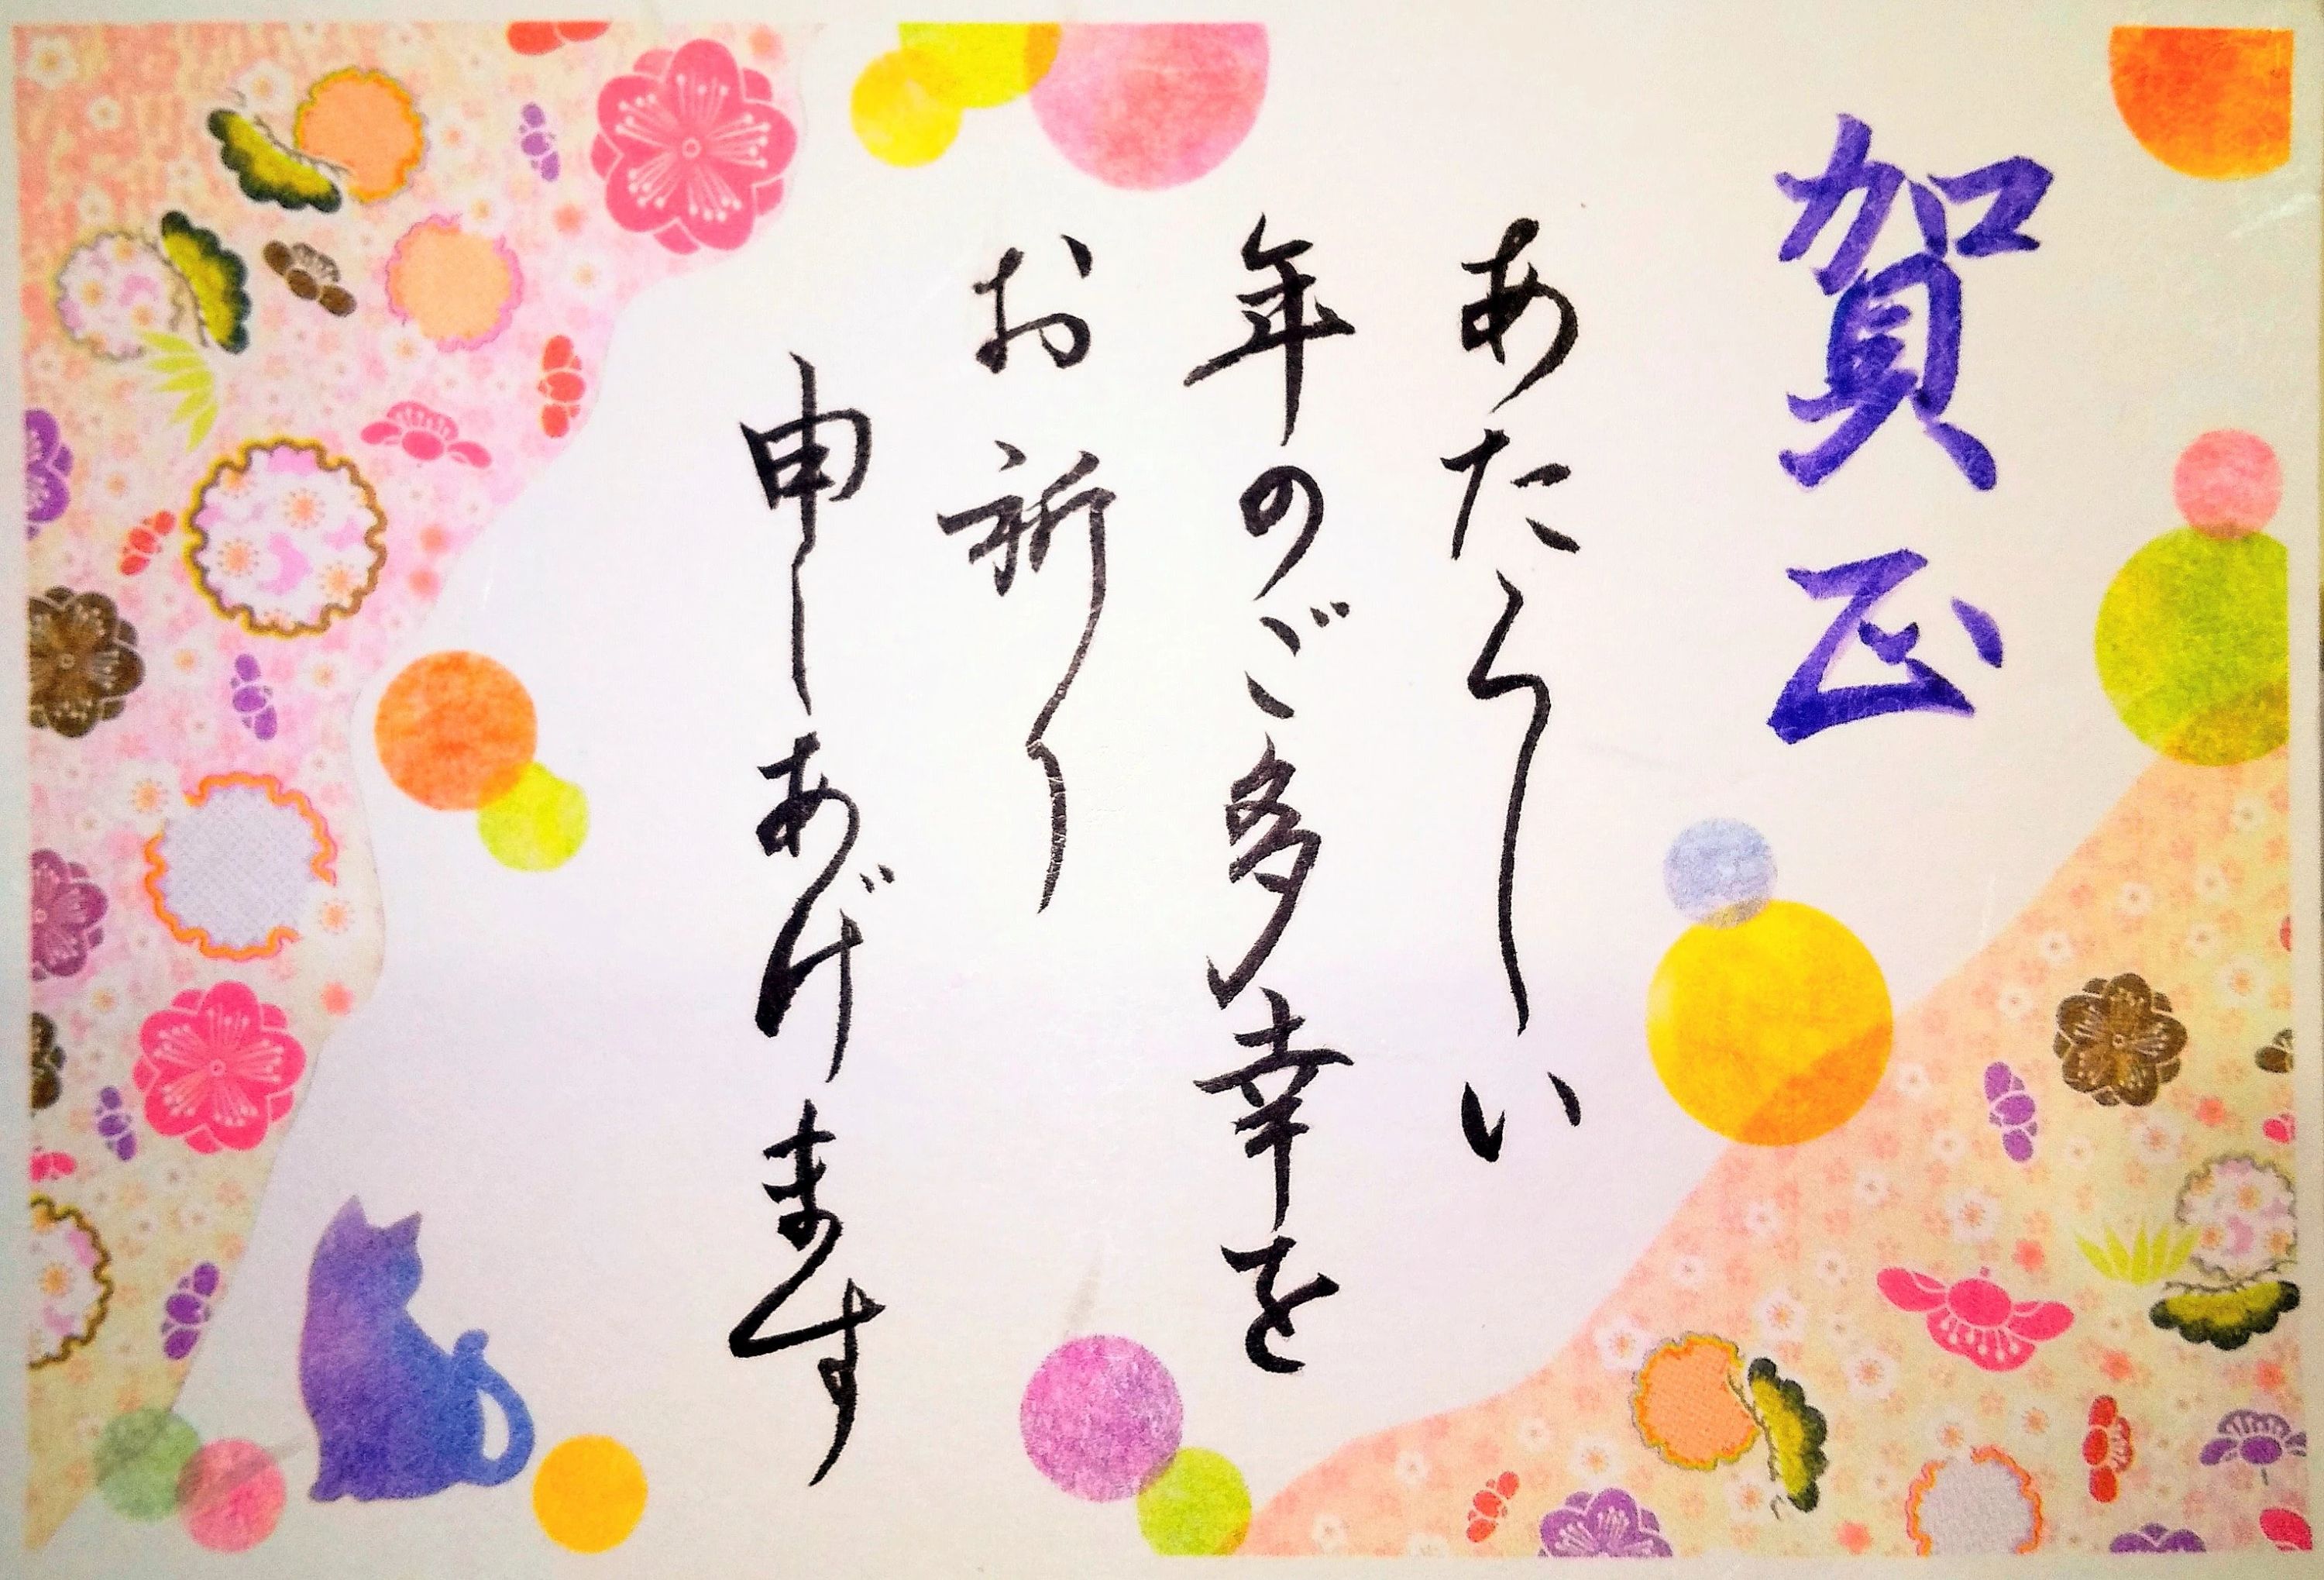 賀正
あたらしい
年のご多幸を
お祈り
申しあげます